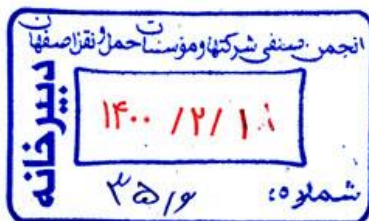 انجمن صنفی شرکتها و مؤسسات حمل و نقل اصفهان
دبیرخانه
۱۴۰۰ /۲/ ۱۸
شماره: ۳۵/۶